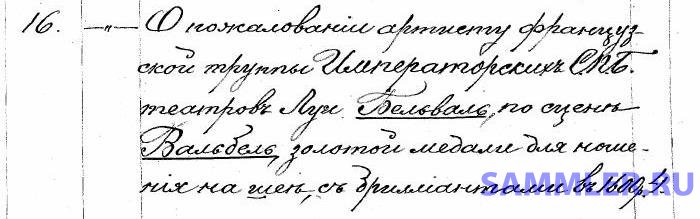 16. —„— О пожалованіи артисту француз-
ской труппы Императорскихъ С.П.Б.
театровъ Луи Бельваль, по сценѣ
Вальбель, золотой медали для ноше-
нія на шеѣ, съ брилліантами въ 1600 р. 4.
SAMMLER.RU